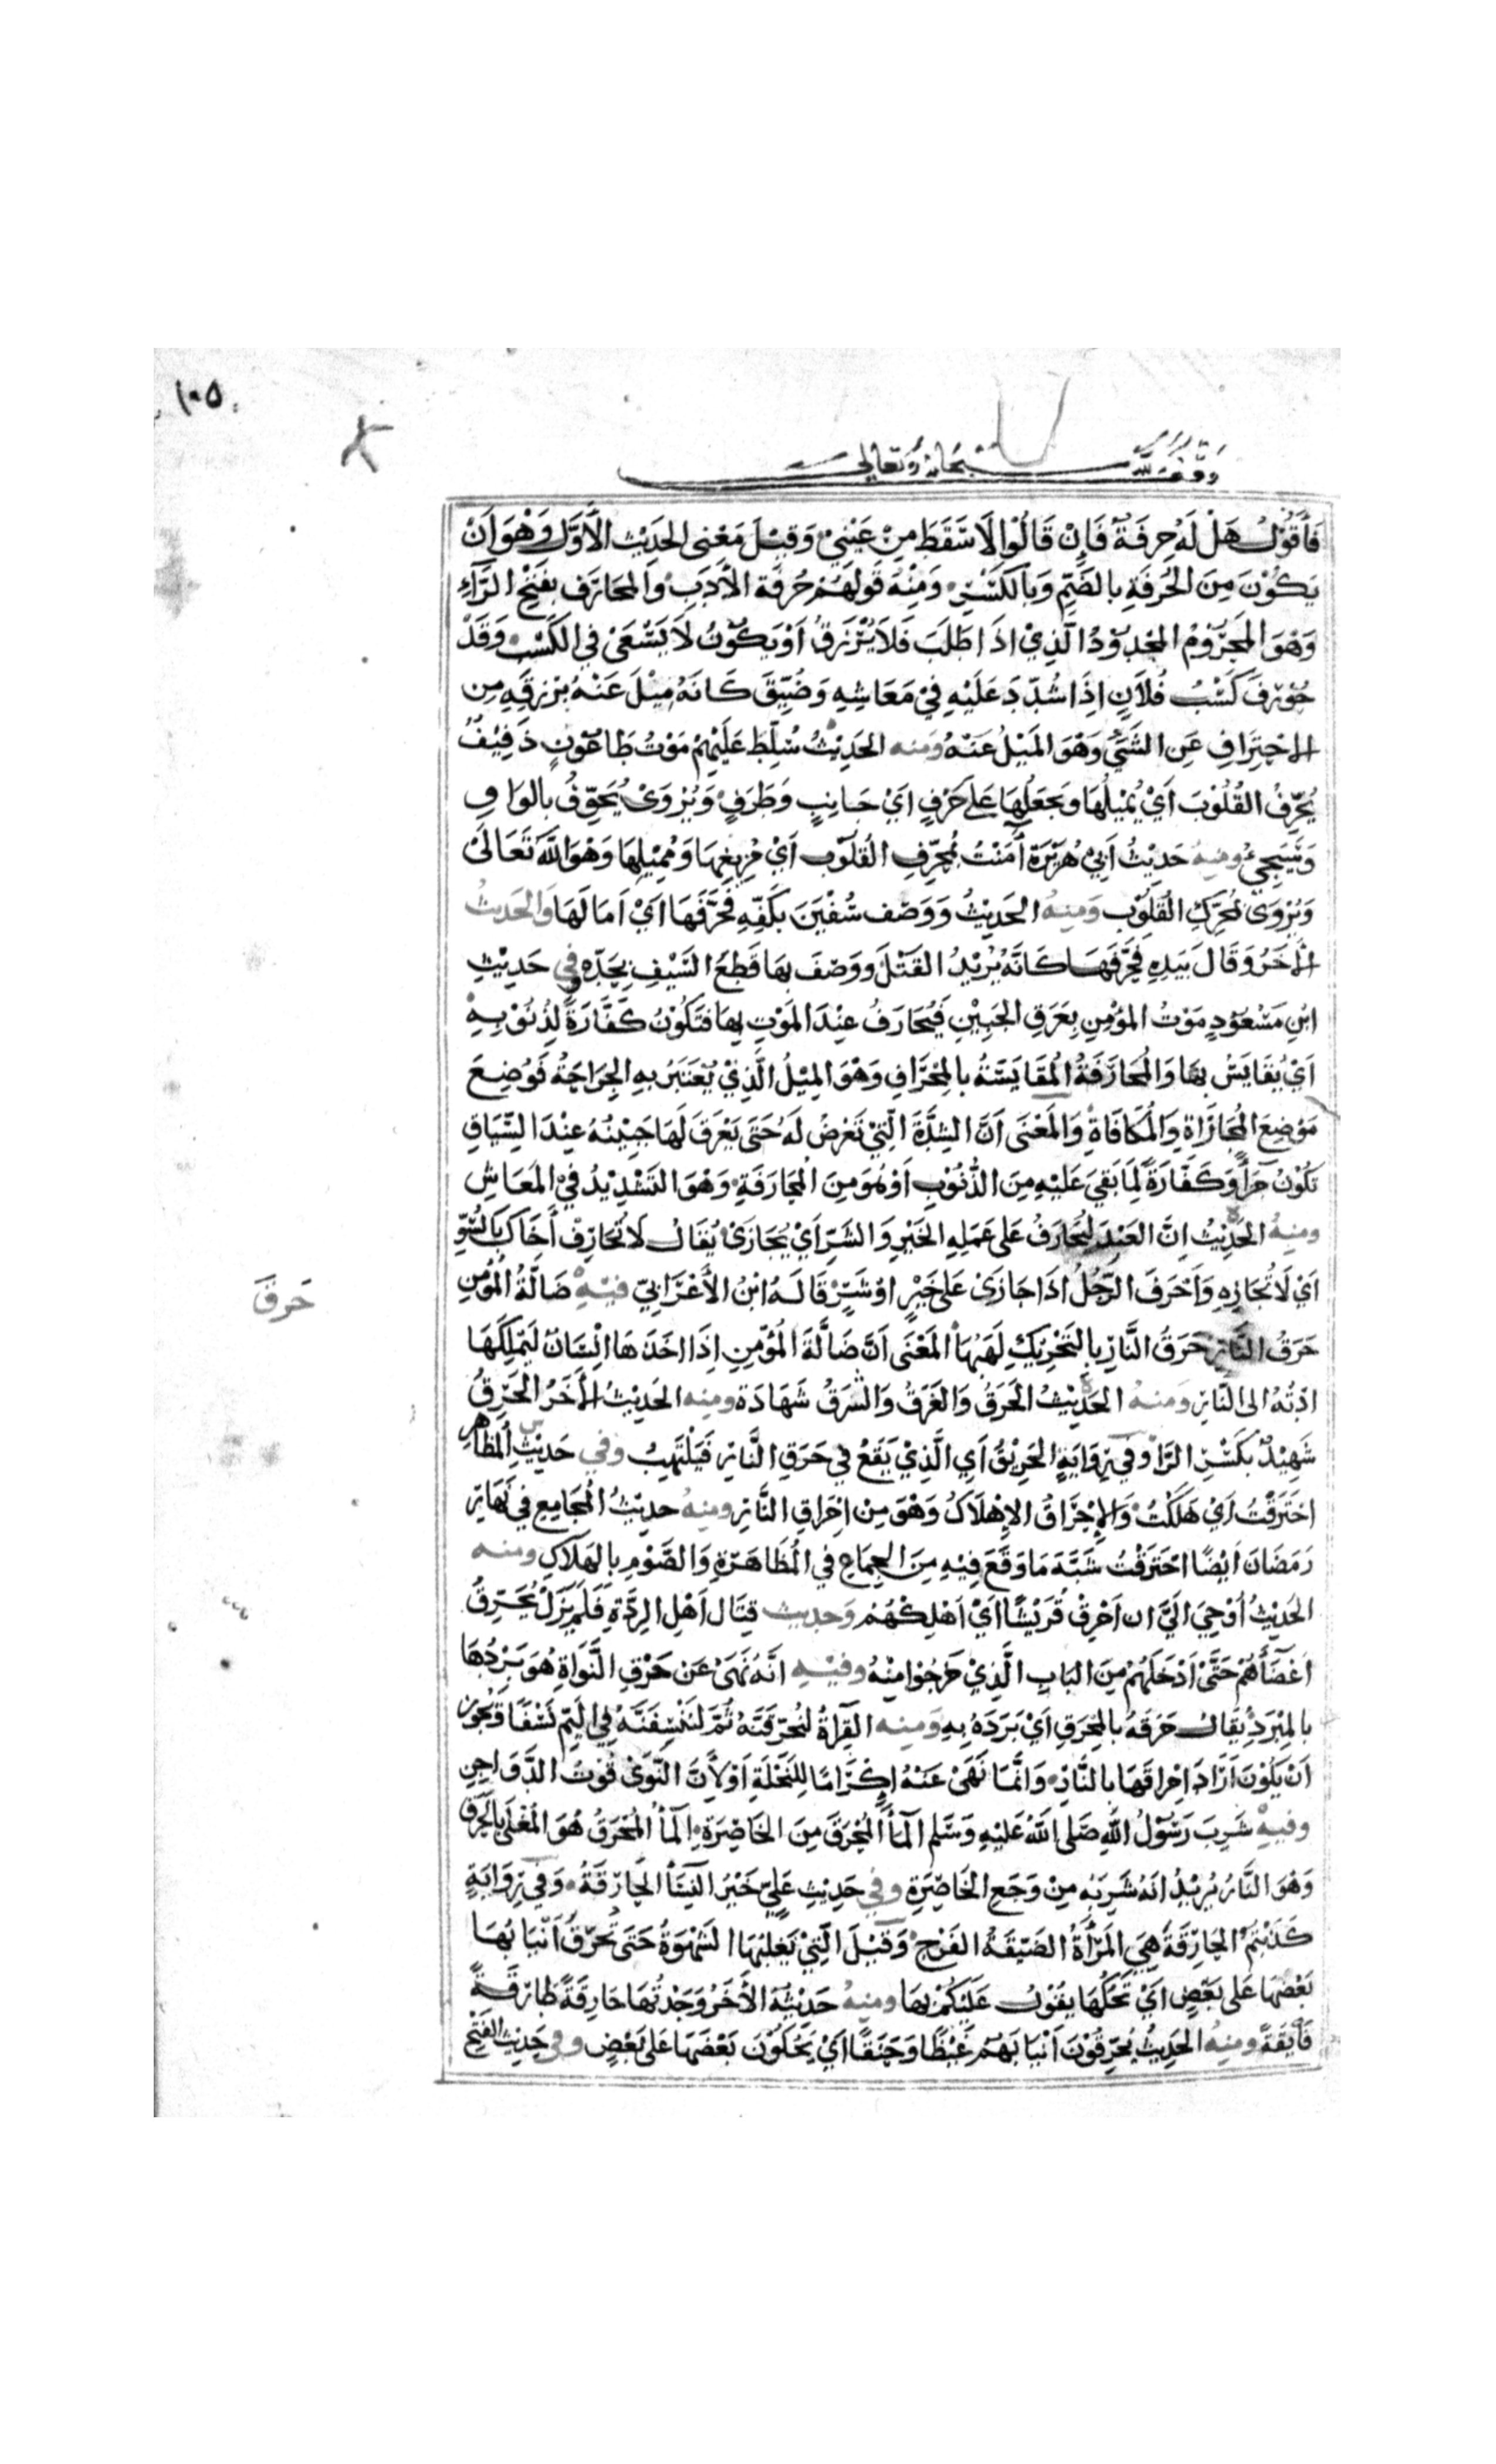 ١٠٥
وقف لله سبحانه وتعالى
فَأَقُوْلُ هَلْ لَهُ حِرفَةٌ فَإِنْ قَالُوْا لَا سَقَطَ مِنْ عَيْنِيْ وَقِيْلَ مَعْنى الحَدِيْثِ الأَوَّلِ وَهْوَ اَنْ
يَكُوْنَ مِنَ الحُرفَةِ بالضَّمِّ وَبالكَسْرِ وَمِنْهُ قَولَهُمْ حُرفَة الأَدَبِ وَالمحَارَف بفَتْحِ الرَّآءِ
وَهْوَ المَحْرُوْمُ المجْدُوْدُ الَّذِيْ اذَا طَلَبَ فَلَا يُرْزَقُ اَوْ يَكُوْنُ لَا يَسْعَىْ في الكَسْبِ وَقَدْ
حُوْرِفَ كَسْبُ فُلَانٍ اِذَا شُدِّدَ عَلَيْهِ فِيْ مَعَاشِهِ وَضُيِّقَ كَانَهُ مِيْلَ عَنْهُ بِرِزقِهِ مِن
الاحْتِرَافِ عَنِ الشَّيْءِ وَهْوَ المَيْلُ عَنْهُ وَمنه الحَدِيْثُ سُلِّطَ عَلَيْهِمْ مَوْتُ طَاعُوْنٍ ذَفِيْفٌ
يُحَرِّفُ القُلُوْبَ اَيْ يُمِيْلُهَا وَيَجعَلُهَا عَلَى حَرْفٍ اَيْ جَانِبٍ وَطَرَفٍ وَيُرْوَىْ يُحَوِّفُ بالوَاوِ
وَسَيَجِيْءُ ومنهُ حَدِيْثُ اَبِيْ هُرَيْرَةَ آمَنْتُ بمُحَرِّفِ القُلُوْبِ اَيْ مُزِيْغِهَا وَمُمِيْلِهَا وَهْوَ اللَّهُ تَعَالَىْ
وَيُرْوَى بمُحَرِّكِ القُلُوْبِ وَمِنهُ الحَدِيْثُ وَوَصَف سُفْيَنَ بكَفِّهِ فَحَرَّفَهَا اَيْ اَمَالَهَا وَالحَدِيثُ
الأخَرُ وَقَالَ بيَدِهِ فَحَرَّفَهَا كَانَّهُ يُرِيْدُ القَتْلَ وَوَصَفَ بهَا قَطعَ السَّيْفِ بحَدِّه وفي حَدِيْثِ
ابْنِ مَسْعُوْدٍ مَوْتُ المؤْمِنِ بعَرَقِ الجَبِيْنِ فَيُحَارَفُ عِنْدَ المَوْتِ بهَا فتَكُوْنُ كَفَّارَةً لِذُنُوْبِهِ
اَيْ يُقَايَسُ بهَا وَالمُحَارَفَةُ المُقَايَسَةُ بالمِحْرَافِ وَهْوَ المِيْلُ الَّذِيْ يُعْتَبَرُ بهِ الجِرَاحَةُ فَوُضِعَ
مَوْضِعَ المجَازَاةِ وَالمُكَافَاةِ وَالمَعْنَى اَنَّ الشِدَّةَ الَّتِيْ تَعْرضُ لَهُ حَتَى يَعْرَقَ لَهَا جَبِيْنُهُ عِنْدَ السِّيَاقِ
تَكُوْنُ جَزَاءً وَكَفَّارَةً لِمَا بَقِيَ عَلَيْهِ مِنَ الذُّنُوْبِ اَوْ هُوَ مِنَ المحَارَفَةِ وَهْوَ التَشْدِيْدُ فيْ المَعَاشِ
ومنهُ الحَدِيْثُ اِنَّ العَبْدَ لَيُحَارَفُ عَلَى عَمَلِهِ الخَيْرِ وَالشَرِّ اَيْ يُجَازَىْ يُقَالُ لَا تُحَارِفْ أَخَاكَ بالسُّوْءِ
اَيْ لَا تُجَازِهِ وَأَحْرَفَ الرَّجُلُ اذَا جَازَىْ عَلَى خَيْرٍ اَوْ شَرٍّ قَالَهُ ابْنُ الأَعْرَابيّ فيْهِ ضَالَّةُ المُؤْمِنِ
حَرَقَ
حَرَقُ النَّارِ حَرَقُ النَّارِ بالتَحْرِيْكِ لَهَبُهَا المَعْنَى اَنَّ ضَالَّةَ المُؤْمِنِ اِذَا اخَذَهَا انْسَانٌ لَيَتَملَّكَهَا
ادَّتْهُ الى النَّارِ وَمنهُ الحَدِيْثُ الحَرَقُ وَالغَرَقُ وَالشَرَقُ شَهَادَة ومنه الحَدِيْثُ الأخَرُ الحَرِقُ
شَهِيْدٌ بكَسْرِ الرَّاءِ وَفي رِوَايَةٍ الحَرِيْقُ اَيِ الَّذِيْ يَقَعُ في حَرَقِ النَّارِ فَيَلْتَهِبُ وفي حَدِيْثِ المظَاهِر
احْتَرَقْتُ اَيْ هَلَكْتُ وَالإِحْرَاقُ الإِهْلَاكُ وَهْوَ مِن اِحْرَاقِ النَّارِ ومنهُ حديْثُ المُجَامِعِ في نَهَارِ
رَمَضَانَ اَيْضًا احْتَرَقْتُ شَبَّهَ مَا وَقَعَ فِيْهِ مِنَ الجِمَاعِ في المُظَاهَرَةِ وَالصَّوْمِ بالهَلَاكِ ومنه
الحَدِيْثُ أُوْحِيَ اليَّ ان اَحْرِقْ قُرَيْشًا اَيْ اَهْلِكْهُمْ وَحديث قِتَال اَهْلِ الرِدَّةِ فَلَمْ يَزَلْ يُحَرِّقُ
اَعْضَآءَهُمْ حَتَّىْ اَدْخَلَهُمْ مِنَ البَابِ الَّذِيْ خَرَجُوْا مِنْهُ وفيْهِ انَّهُ نَهَىْ عَن حَرْقِ النَّوَاةِ هُوَ بَرْدُهَا
بالمِبْرَدِ يُقَالُ حَرَقَهُ بالمِحْرَقِ اَيْ بَرَدَهُ بهِ وَمنه القِرَاءَةُ لَنَحْرُقَنَّهُ ثُمَّ لَنَنْسِفَنَّهُ في اليَمِّ نَسْفًا وَيَجُوْزُ
اَنْ يَكُوْنَ اَرَادَ اِحْرَاقَهَا بالنَّارِ وَانَّمَا نَهَىْ عَنْهُ اِكْرَامًا لِلنَّخْلَةِ اَوْ لأَنَّ النَّوَىْ قُوْتُ الدَّوَاجِنِ
وفيهِ شَرِبَ رَسُوْلُ اللَّهِ صَلى اللَّهُ عَلَيْهِ وَسَلم المَآءَ المُحْرَقَ مِنَ الخَاصِرَةِ المَآءُ المُحْرَقُ هُوَ المُغْلَى بالحَرَقِ
وَهْوَ النَّارُ يُرِيْدُ انَهُ شَرِبَهُ مِنْ وَجَعِ الخَاصِرَةِ وفي حَدِيْثِ عَلِيٍّ خَيْرُ النِّسَآءِ الحَارِقَةُ وَفي رِوَايَةٍ
كَذَبَتْكُمُ الحَارِقَةُ هِيَ المَرْأَةُ الضَيِّقَةُ الفَرْجِ وَقِيْلَ الَّتِيْ يَغلِبُهَا الشَهْوَةُ حَتَى تُحَرِّقُ اَنْيَابُهَا
بَعْضَهَا عَلى بَعْضٍ اَيْ تَحُكُّهَا يقُوْلُ عَلَيْكُمْ بهَا ومنهُ حَدِيْثُهُ الأخَرُ وَجَدْتُهَا حَارِقَةً طَارِقَةً
فَآئِقَةً ومنهُ الحَدِيْثُ يَحْرِقُوْنَ اَنْيَابَهُمْ غَيْظًا وَحَنَقًا اَيْ يَحُكُّوْنَ بَعْضَهَا عَلى بَعْضٍ وفي حَدِيْثِ الفَتْحِ